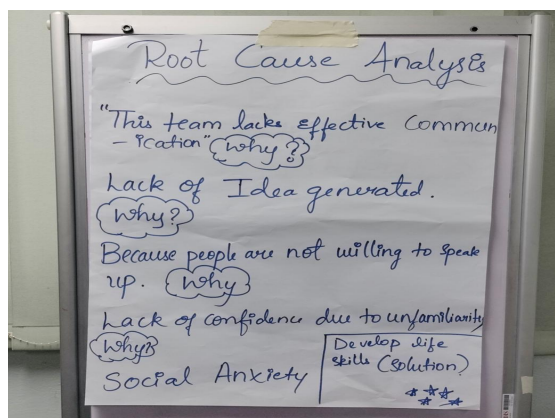 Root Cause Analysis
"This team lacks effective commun
- ication" Why?
Lack of Idea generated.
Why?
Because people are not willing to speak
up. Why
Lack of confidence due to unfamiliarity
Why?
Social Anxiety
Develop life
skills (solution)